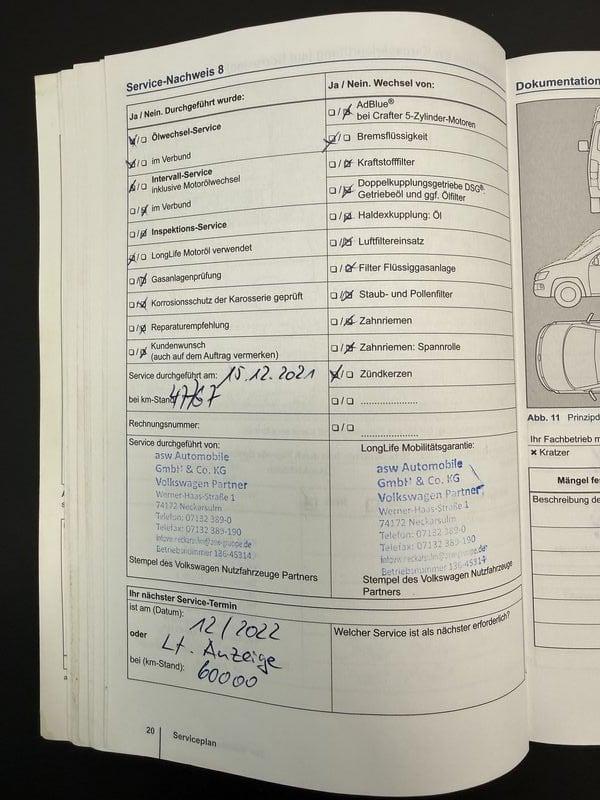 Service-Nachweis 8
Ja / Nein. Durchgeführt wurde:
Ölwechsel-Service
im Verbund
Intervall-Service
inklusive Motorölwechsel
im Verbund
Inspektions-Service
LongLife Motoröl verwendet
Gasanlagenprüfung
Korrosionsschutz der Karosserie geprüft
Reparaturempfehlung
Kundenwunsch
(auch auf dem Auftrag vermerken)
Service durchgeführt am: 15.12.2021
bei km-Stand
Rechnungsnummer:
Service durchgeführt von:
asw Automobile
GmbH & Co. KG
Volkswagen Partner
Werner-Haas-Straße 1
74172 Neckarsulm
Telefon: 07132 389-0
Telefax: 07132 389-190
Betriebsnummer 136-45314
Stempel des Volkswagen Nutzfahrzeuge Partners
Ja / Nein. Wechsel von:
AdBlue®
bei Crafter 5-Zylinder-Motoren
Bremsflüssigkeit
Kraftstofffilter
Doppelkupplungsgetriebe DSG®:
Getriebeöl und ggf. Ölfilter
Haldexkupplung: Öl
Luftfiltereinsatz
Filter Flüssiggasanlage
Staub- und Pollenfilter
Zahnriemen
Zahnriemen: Spannrolle
Zündkerzen
LongLife Mobilitätsgarantie:
asw Automobile
GmbH & Co. KG
Volkswagen Partner
Werner-Haas-Straße 1
74172 Neckarsulm
Telefon: 07132 389-0
Telefax: 07132 389-190
Betriebsnummer 136-45314
Stempel des Volkswagen Nutzfahrzeuge
Partners
Ihr nächster Service-Termin
ist am (Datum): 12/2022
oder Lt. Anzeige
bei (km-Stand): 60000
Welcher Service ist als nächster erforderlich?
20 Serviceplan
Dokumentation
Abb. 11 Prinzipd
Ihr Fachbetrieb m
× Kratzer
Mängel fe
Beschreibung de